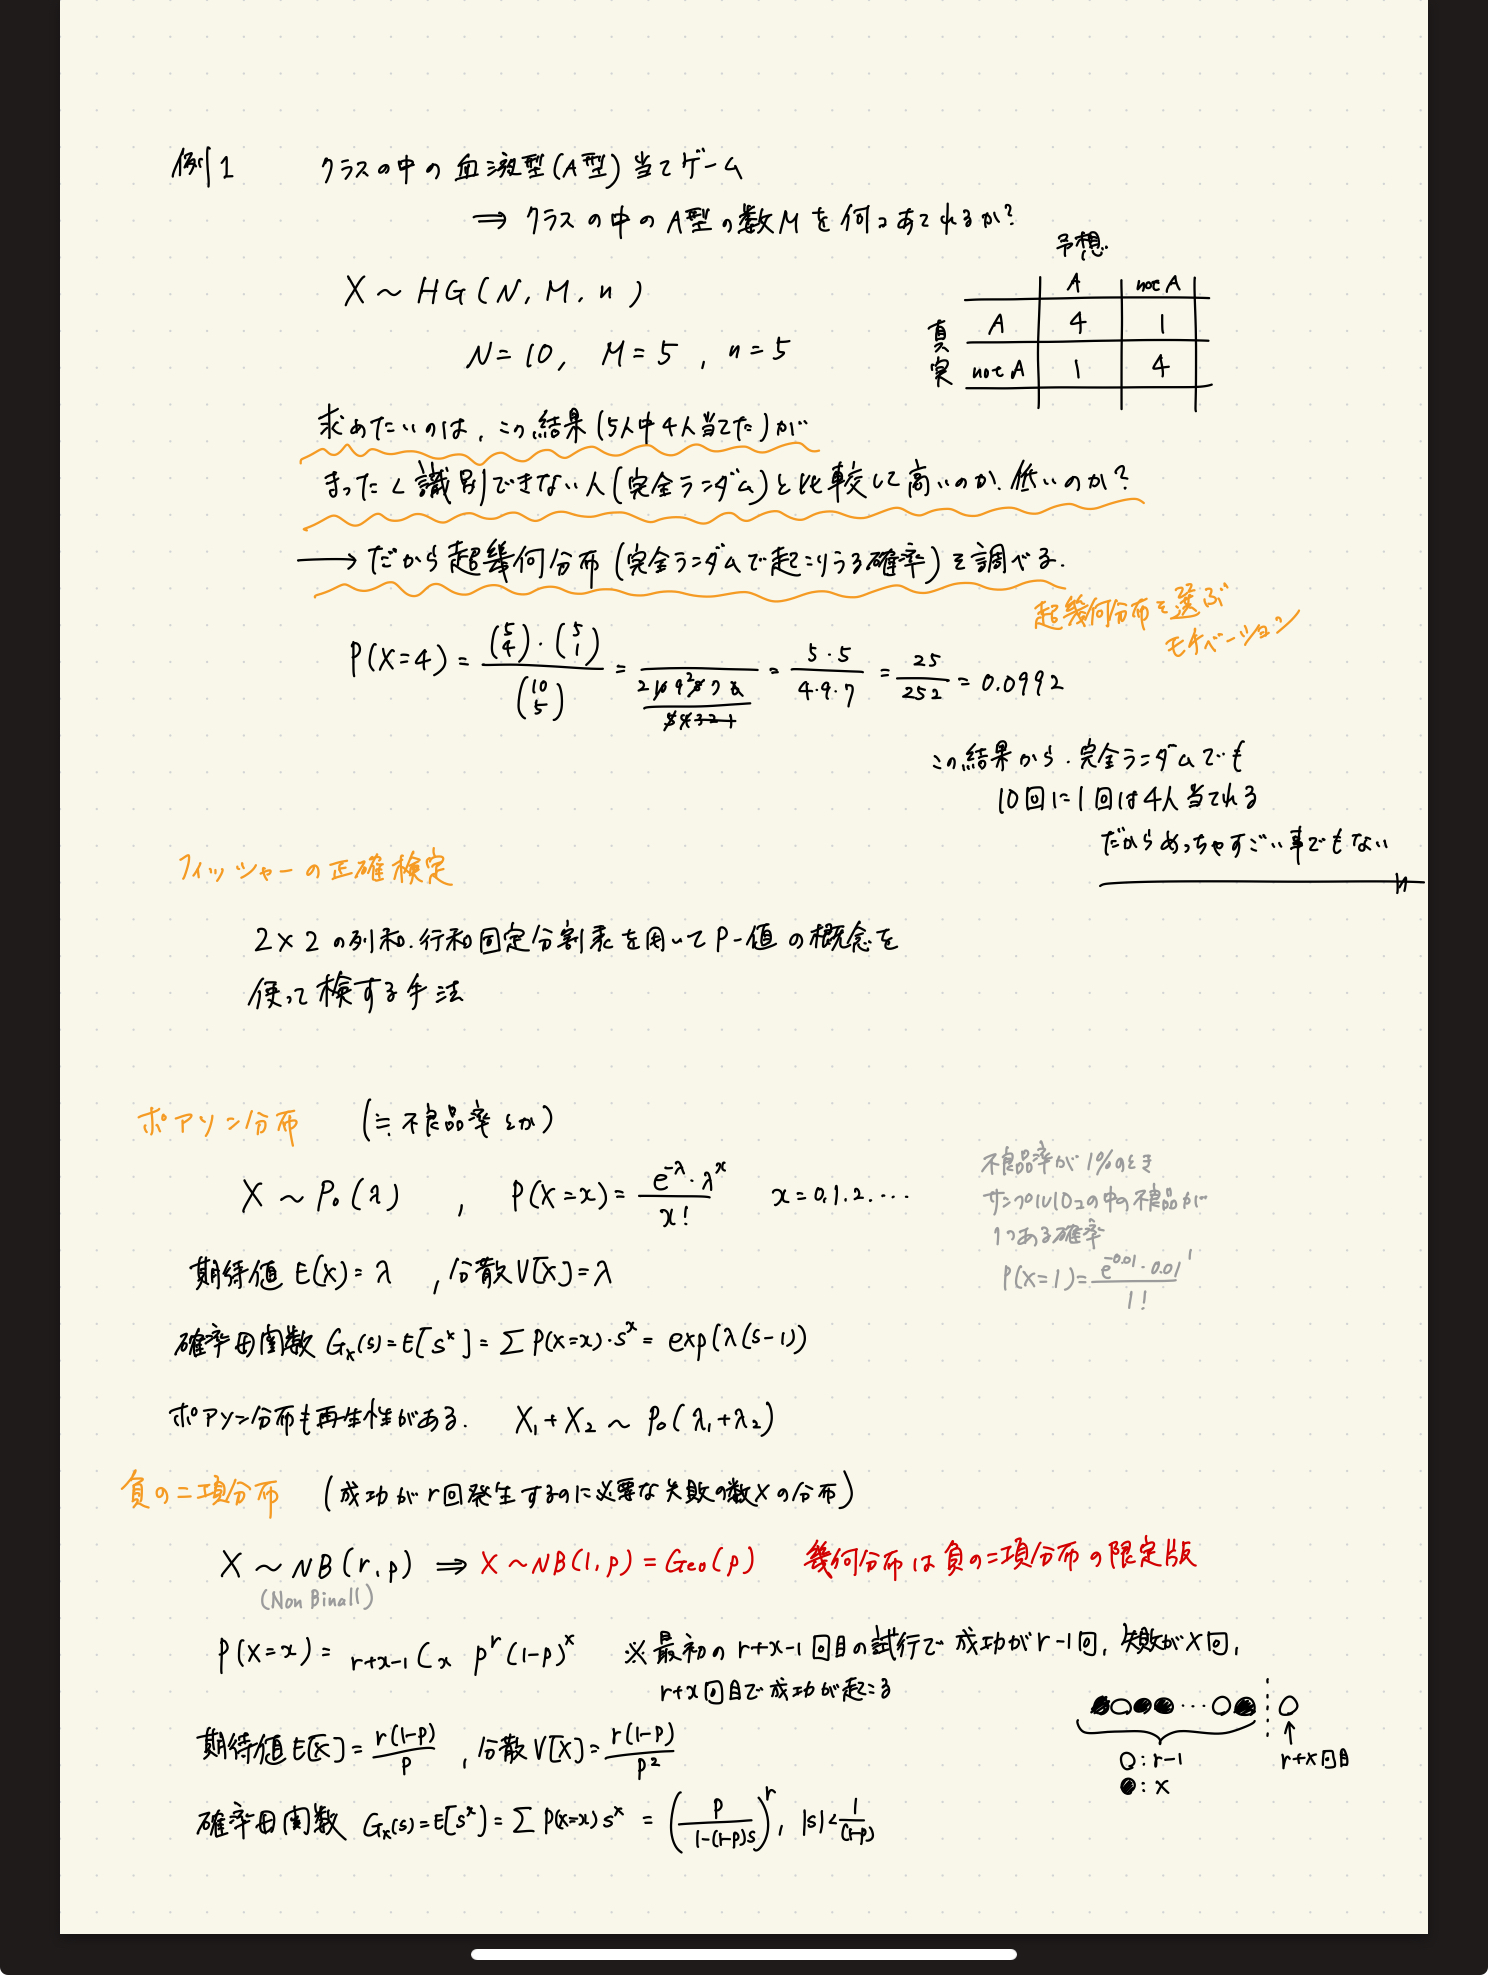 例1 クラスの中の血液型(A型)当てゲーム
⇒ クラスの中のA型の数Mを何コあてれるか?
X ~ HG(N, M, n)
N=10, M=5, n=5
予想
A not A
真実
A 4 1
not A 1 4
求めたいのは,この結果(5人中4人当てた)が
まったく識別できない人(完全ランダム)と比較して高いのか.低いのか?
→ だから超幾何分布(完全ランダムで起こりうる確率)を調べる.
超幾何分布を選ぶ
モチベーション
P(X=4) = (5 4)・(5 1) / (10 5) = = 5・5 / 4・9・7 = 25/252 = 0.0992
この結果から.完全ランダムでも
10回に1回は4人当てれる
だからめっちゃすごい事でもない
フィッシャーの正確検定
2×2の列和.行和固定分割表を用いてP-値の概念を
使って検する手法
ポアソン分布 (≒不良品率とか)
X ~ Po(λ) , P(X=x) = e^-λ・λ^x / x! x=0.1.2.…
不良品率が1%のとき
サンプル10コの中の不良品が
1つある確率
P(X=1) = e^-0.01・0.01^1 / 1!
期待値 E(X)=λ ,分散 V[X]=λ
確率母関数 Gx(s)=E[s^x]=Σ P(X=x)・s^x = exp(λ(s-1))
ポアソン分布も再生性がある. X₁+X₂ ~ Po(λ₁+λ₂)
負の二項分布 (成功がr回発生するのに必要な失敗の数Xの分布)
X ~ NB(r,p) ⇒ X ~ NB(1,p) = Geo(p) 幾何分布は負の二項分布の限定版
(Non Binall)
P(X=x) = r+x-1 C x p^r (1-p)^x ※最初のr+x-1回目の試行で成功がr-1回,失敗がx回,
r+x回目で成功が起こる
○:r-1
●:x
r+x回目
期待値 E[X] = r(1-p)/p ,分散 V[X] = r(1-p)/p²
確率母関数 Gx(s)=E[s^x]=Σ P(X=x) s^x = (p / 1-(1-p)s)^r, |s|<1/(1-p)